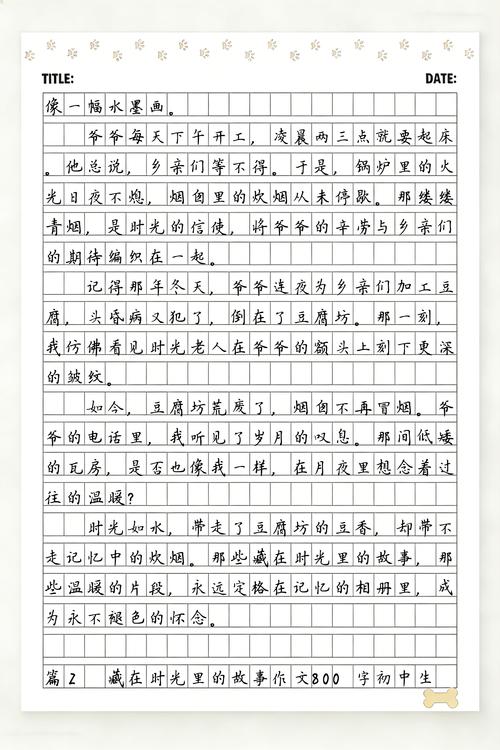 TITLE: DATE:
像一幅水墨画。
爷爷每天下午开工，凌晨两三点就要起床
。他总说，乡亲们等不得。于是，锅炉里的火
光日夜不熄，烟囱里的炊烟从未停歇。那缕缕
青烟，是时光的信使，将爷爷的辛劳与乡亲们
的期待编织在一起。
记得那年冬天，爷爷连夜为乡亲们加工豆
腐，头昏病又犯了，倒在了豆腐坊。那一刻，
我仿佛看见时光老人在爷爷的额头上刻下更深
的皱纹。
如今，豆腐坊荒废了，烟囱不再冒烟。爷
爷的电话里，我听见了岁月的叹息。那间低矮
的瓦房，是否也像我一样，在月夜里想念着过
往的温暖？
时光如水，带走了豆腐坊的豆香，却带不
走记忆中的炊烟。那些藏在时光里的故事，那
些温暖的片段，永远定格在记忆的相册里，成
为永不褪色的怀念。
篇2 藏在时光里的故事作文800 字初中生